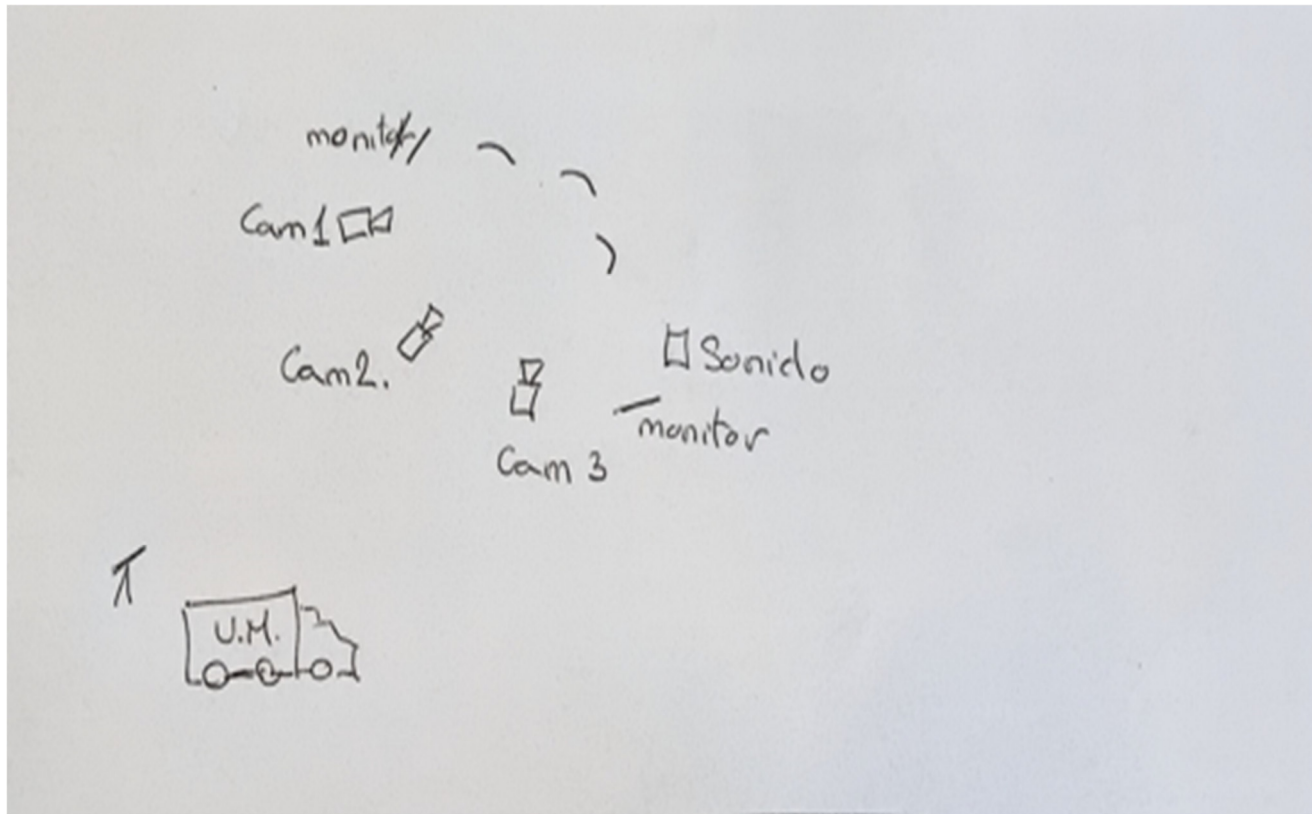 monitor
Cam1
Cam2.
Sonido
monitor
Cam 3
U.M.